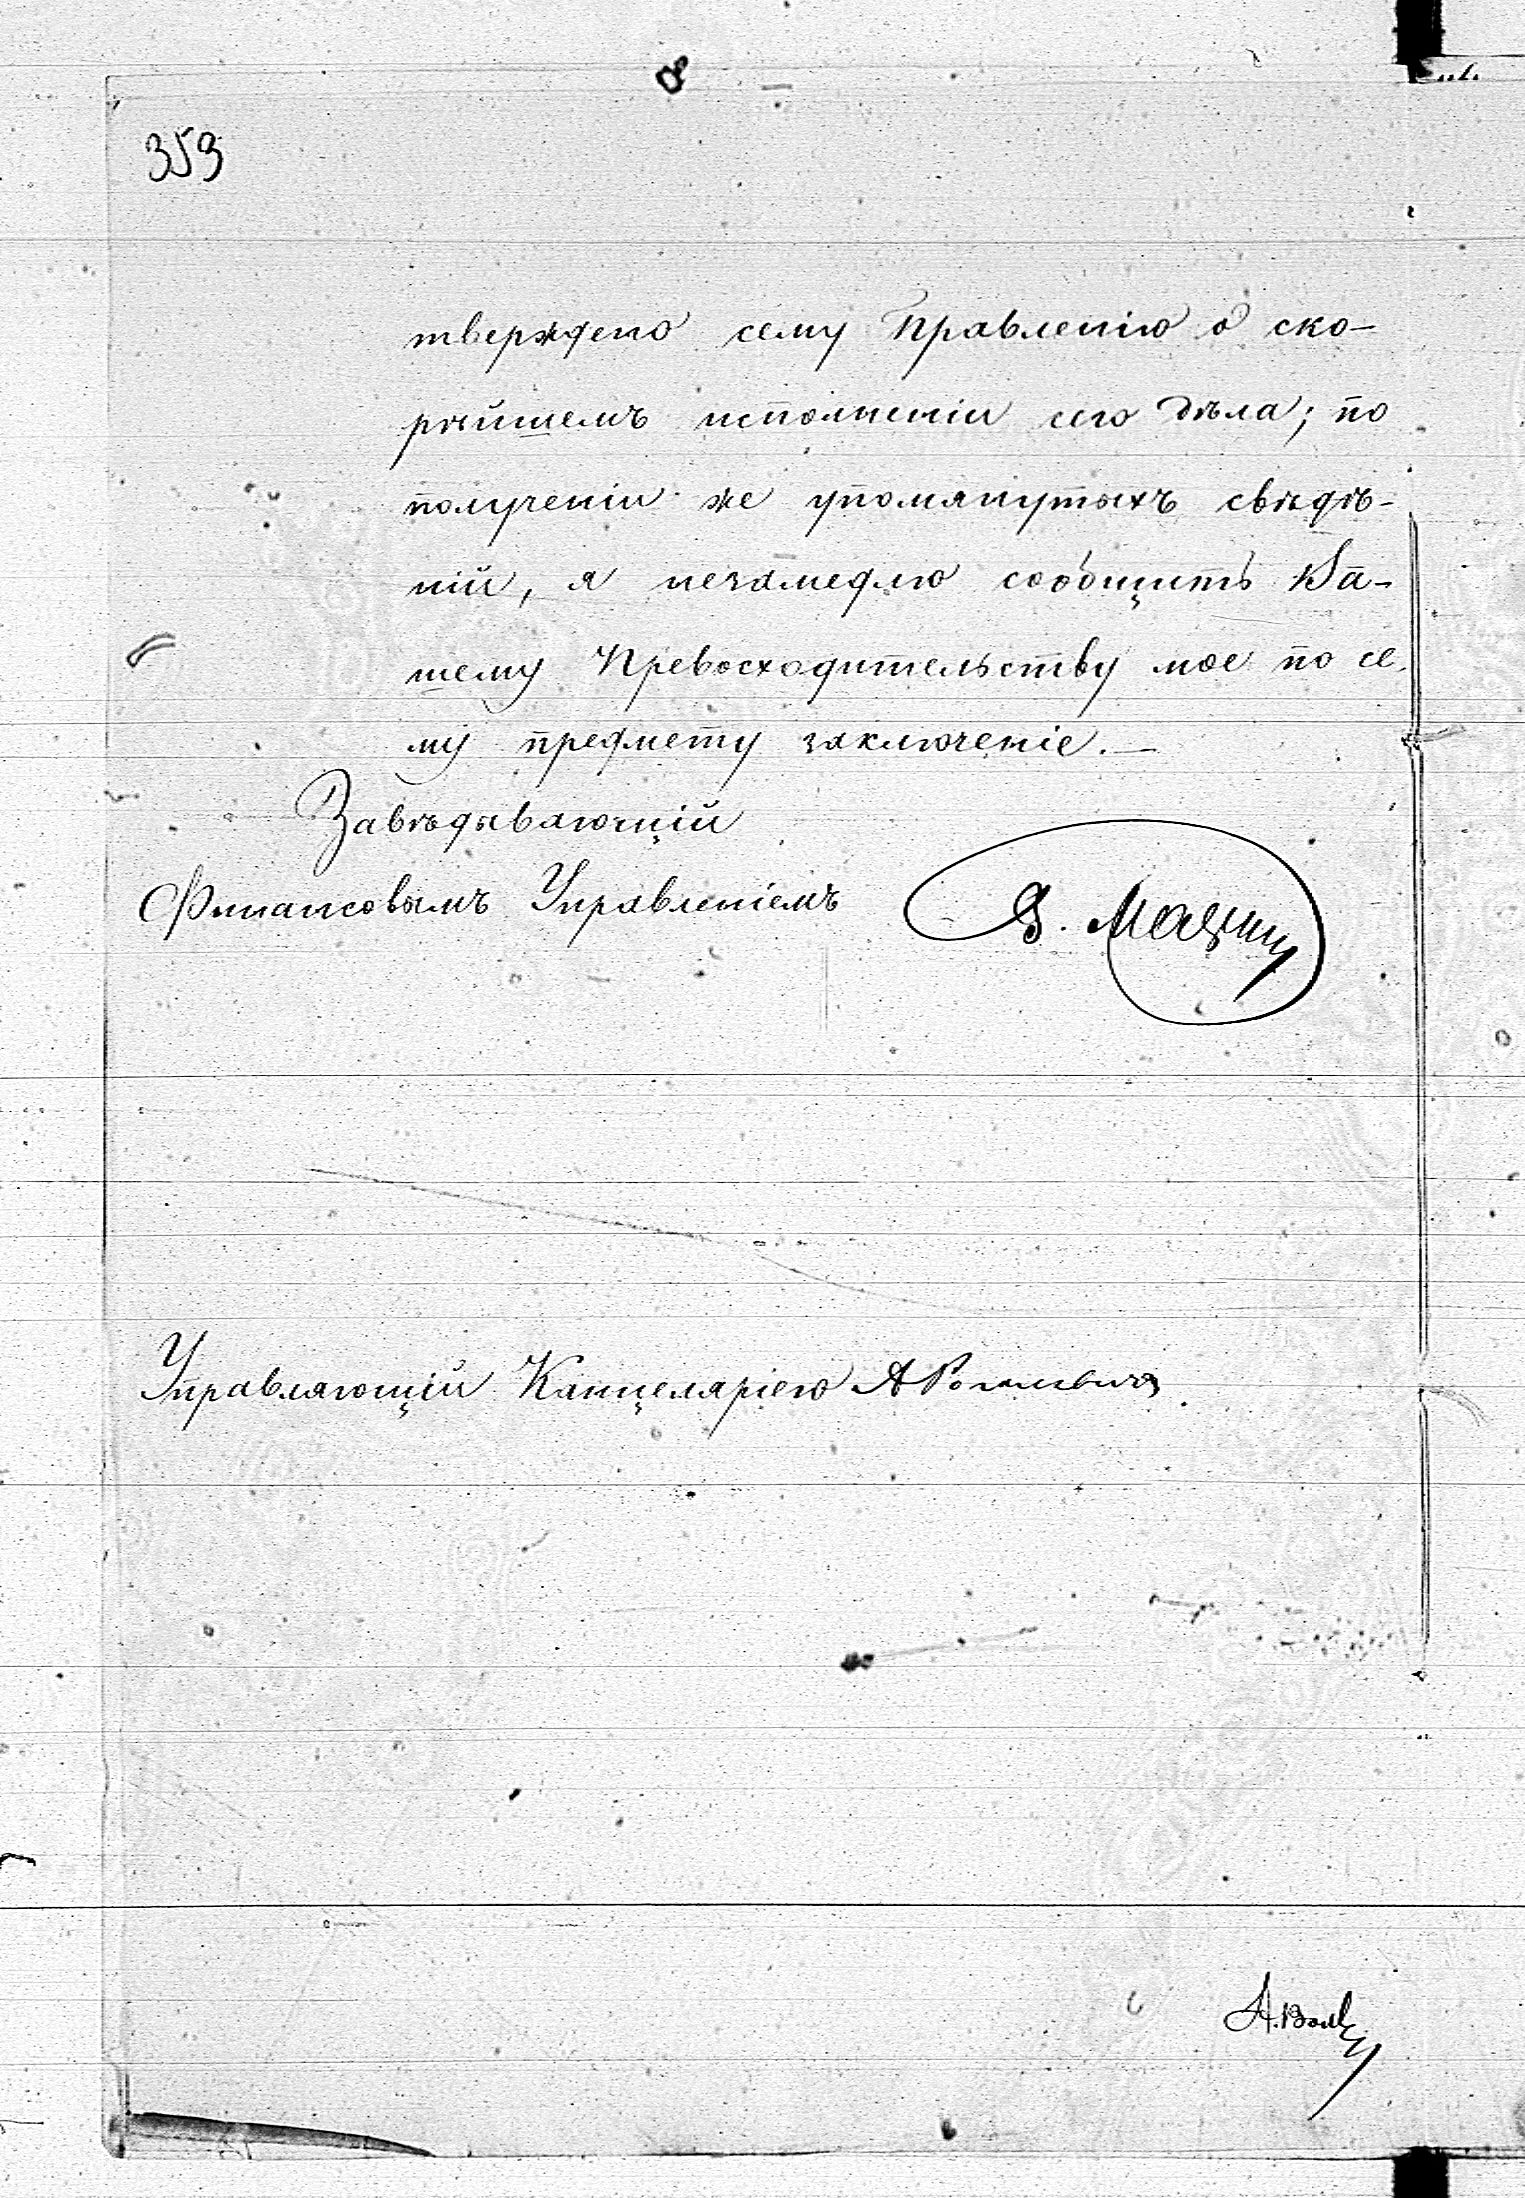 359
тверждено сему Правленію о ско-
рѣйшемъ исполненіи сего дѣла; по
полученіи же упомянутыхъ свѣдѣ-
ній, я незамедлю сообщить Ва-
шему Превосходительству мое по се-
му предмету заключеніе.—
Завѣдывающій
Финансовымъ Управленіемъ
Управляющій Канцеляріею